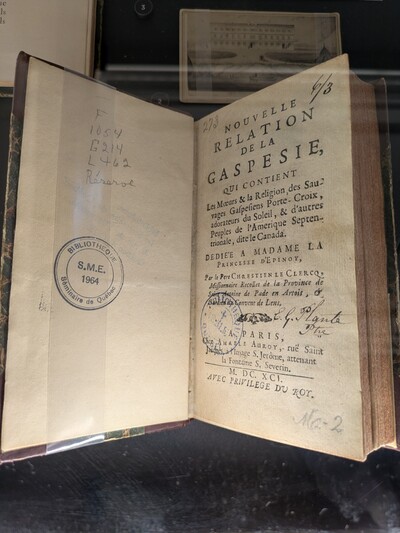 3
F
1054
G214
L462
Réserve
BIBLIOTHÈQUE
S.M.E.
1964
Séminaire de Québec
273
NOUVELLE
RELATION
DE LA
GASPESIE,
QUI CONTIENT
Les Mœurs & la Religion des Sau-
vages Gaspesiens Porte-Croix,
adorateurs du Soleil, & d'autres
Peuples de l'Amerique Septen-
trionale, dite le Canada.
DEDIE'E A MADAME LA
PRINCESSE D'EPINOY,
Par le Pere CHRESTIEN LE CLERCQ,
Missionnaire Recollet de la Province de
Saint Antoine de Pade en Artois, &
Convent de Lens.
Plante
Ptre
A PARIS,
Chez AMABLE AUROY, ruë Saint
Jacques, à l'Image S. Jerôme, attenant
la Fontaine S. Severin.
M. DC. XCI.
AVEC PRIVILEGE DU ROY.
Ma-2